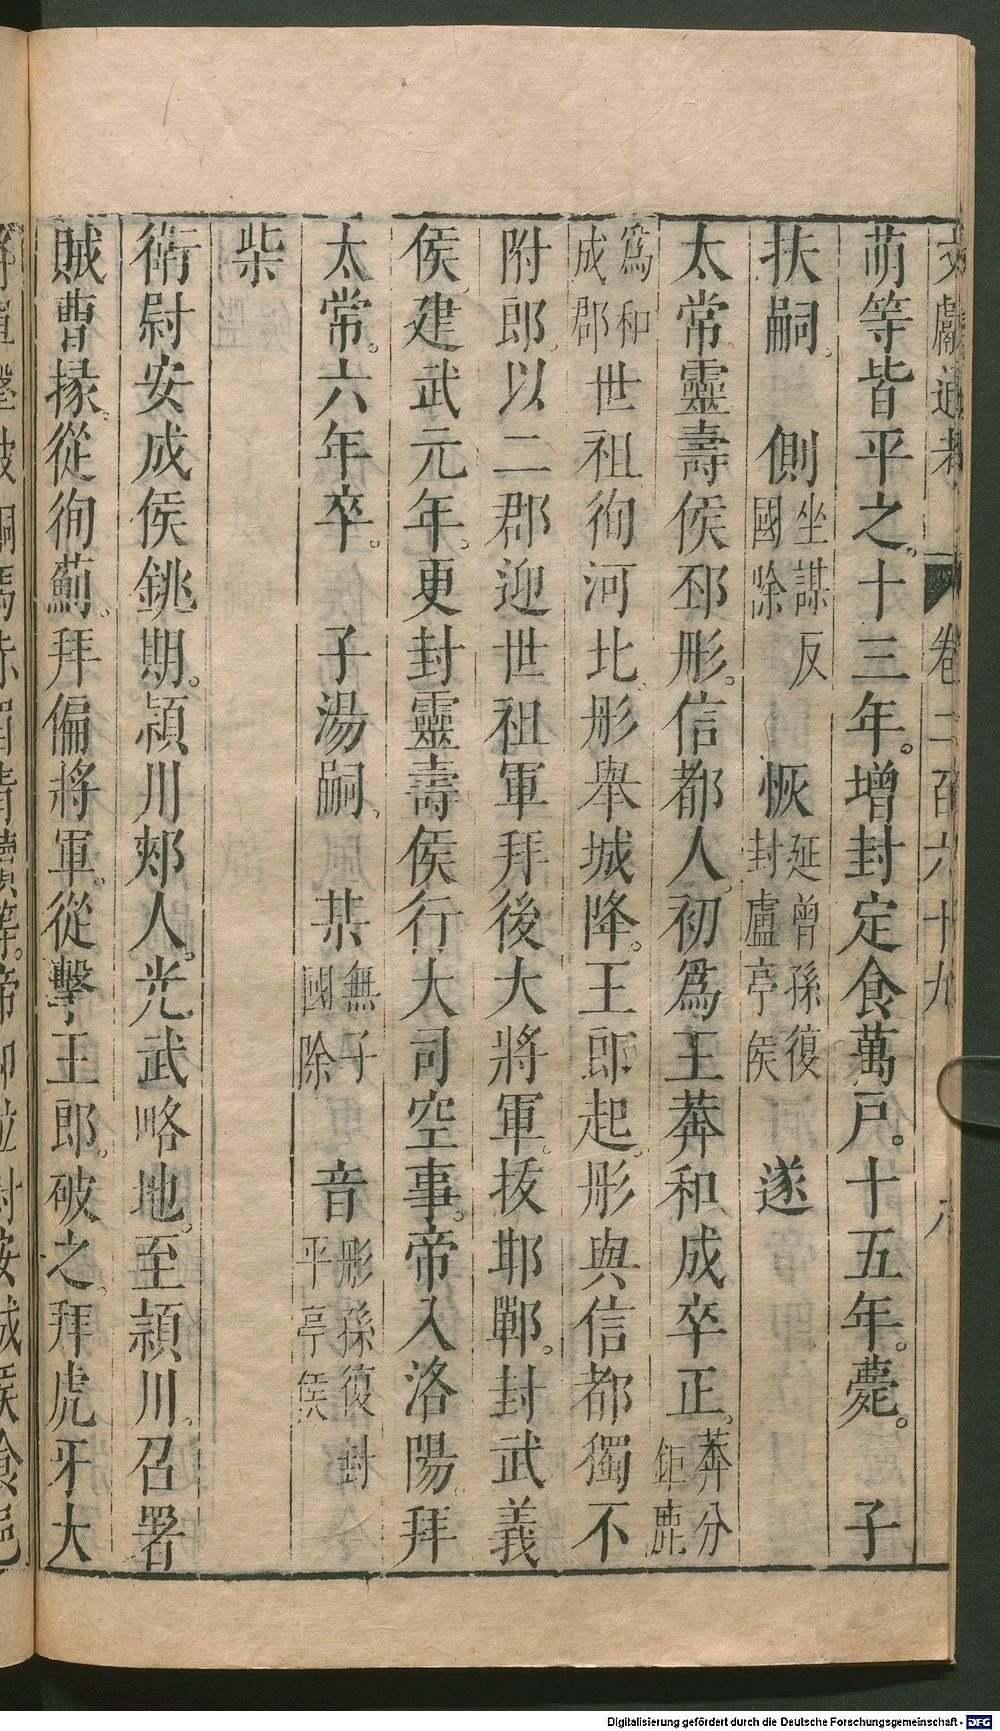 文獻通考　卷二百六十九　六
萌等皆平之。十三年。增封定食萬戶。十五年。薨。　子
扶嗣。　側坐謀反國除　恢延曾孫復封盧亭侯　遂
太常靈壽侯邳彤。信都人。初爲王莽和成卒正。莽分鉅鹿
爲和成郡世祖徇河北。彤舉城降。王郎起。彤與信都獨不
附郎。以二郡迎世祖軍拜後大將軍。拔邯鄲。封武義
侯。建武元年。更封靈壽侯行大司空事。帝入洛陽。拜
太常。六年卒。　子湯嗣。　某無子國除　音彤孫復封平亭侯
柴
衛尉安成侯銚期。潁川郟人。光武略地。至潁川。召署
賊曹掾。從徇薊。拜偏將軍。從擊王郎。破之。拜虎牙大
Digitalisierung gefördert durch die Deutsche Forschungsgemeinschaft - DFG